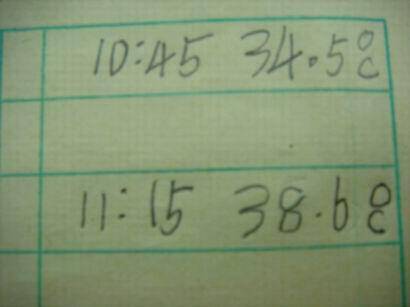 10:45 34.5°C
11:15 38.6°C